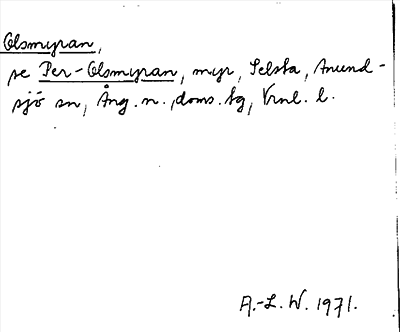 Olsmyran,
se Per-Olsmyran, myr, Selsta, Anund-
sjö sn, Ång. n., doms. tg, Vrnl. l.
A.-L. W. 1971.